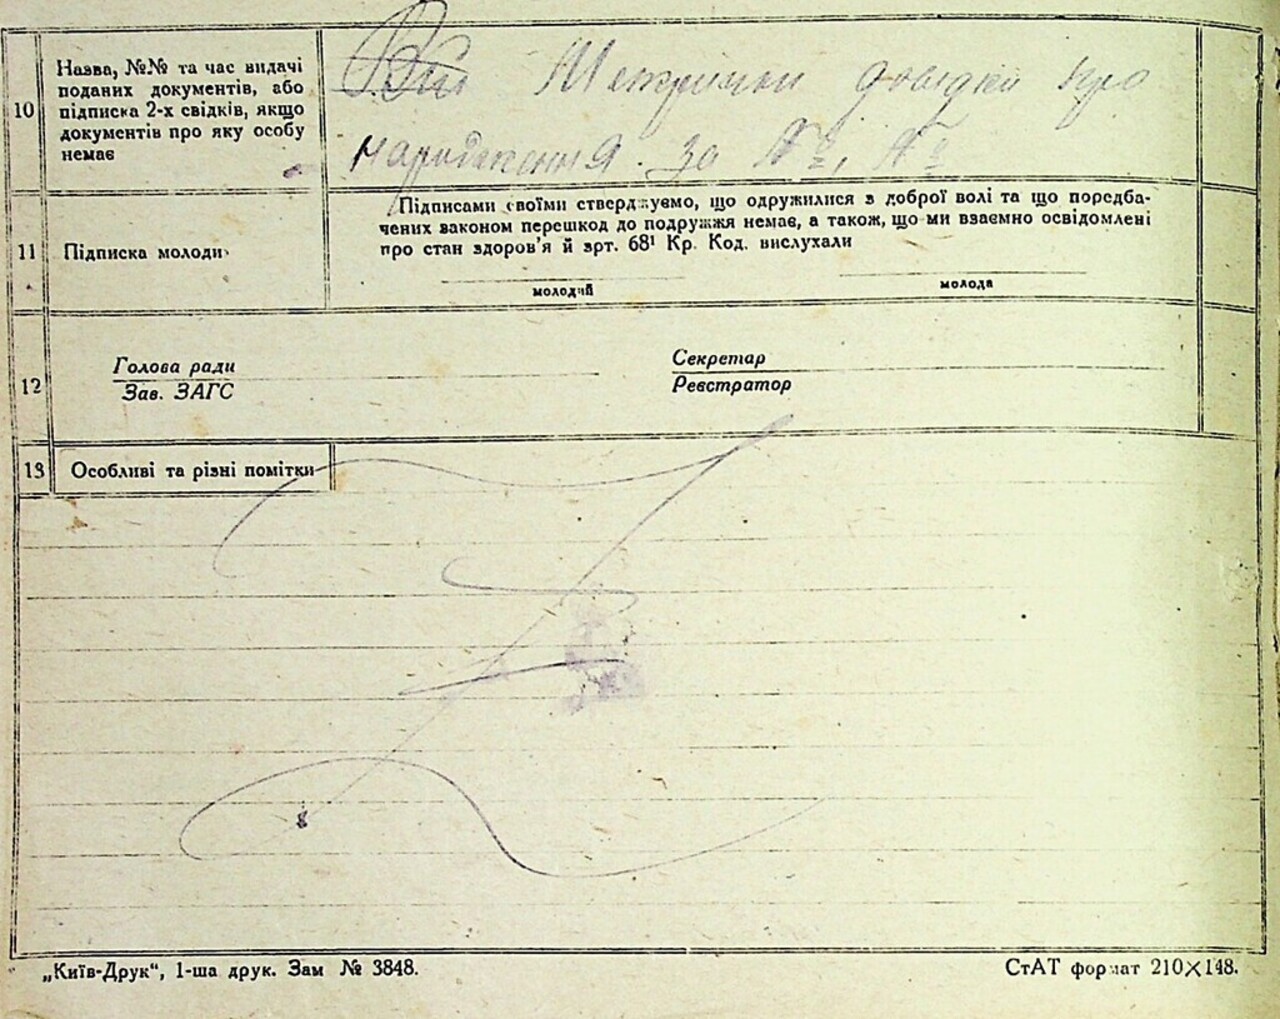 10
Назва, №№ та час видачі
поданих документів, або
підписка 2-х свідків, якщо
документів про яку особу
немає
Метрични довідки про
народження. за №, №
11
Підписка молоди
Підписами своїми стверджуємо, що одружилися з доброї волі та що поредба-
чених законом перешкод до подружжя немає, а також, що ми взаємно освідомлені
про стан здоров'я й арт. 68¹ Кр. Код. вислухали
молодий
молода
12
Голова ради
Зав. ЗАГС
Секретар
Реєстратор
13
Особливі та різні помітки
„Київ-Друк“, 1-ша друк. Зам № 3848.
СтАТ формат 210×148.